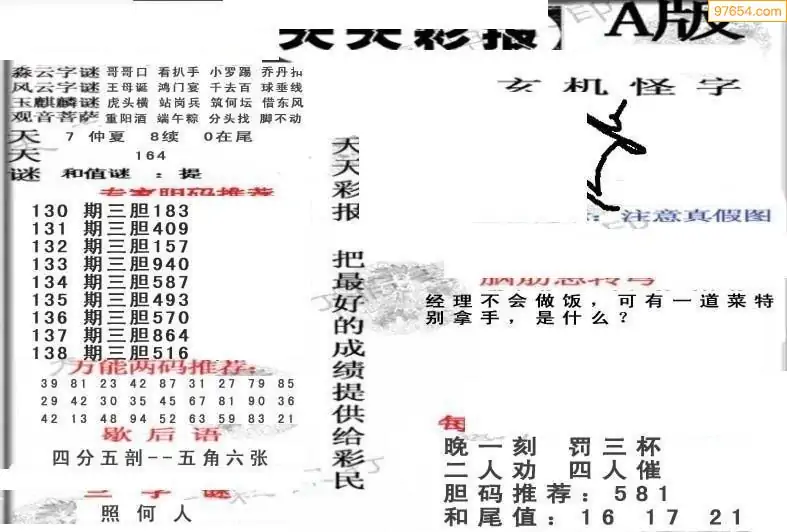 97654.com
天天彩报】A版
森云字谜 哥哥口 看扒手 小罗踢 乔丹扣
风云字谜 王母诞 鸿门宴 千去百 球垂线
玉麒麟谜 虎头横 站岗兵 筑何坛 借东风
观音菩萨 重阳酒 端午粽 分头找 脚不动
天 7 仲夏 8续 0在尾
天 164
谜 和值谜 ：提
专家胆码推荐
130 期三胆183
131 期三胆409
132 期三胆157
133 期三胆940
134 期三胆587
135 期三胆493
136 期三胆570
137 期三胆864
138 期三胆516
万能两码推荐：
39 81 23 42 87 31 27 79 85
29 42 30 35 45 67 81 90 36
42 13 48 94 52 63 59 83 21
歇后语
四分五剖--五角六张
三字谜
照何人
天天彩报 把最好的成绩提供给彩民
玄机怪字
：注意真假图
脑筋急转弯
经理不会做饭，可有一道菜特
别拿手，是什么？
晚一刻 罚三杯
二人劝 四人催
胆码推荐：581
和尾值：16 17 21